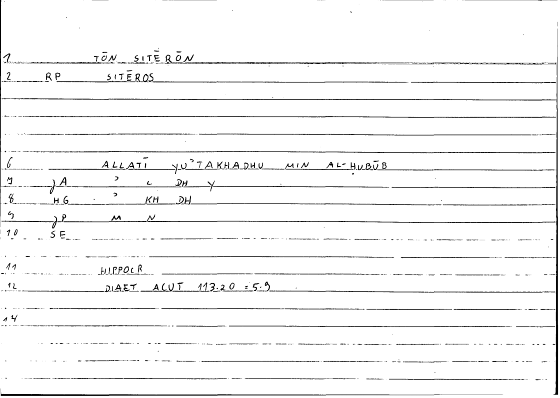 1 TŌN SITĒRŌN
2 RP SITĒROS
6 ALLATĪ YU'TAKHADHU MIN AL-ḤUBŪB
7 JA ' L DH Y
8 HG ' KH DH
9 JP M N
10 SE
11 HIPPOCR
12 DIAET ACUT 113.20 = 5.9
14